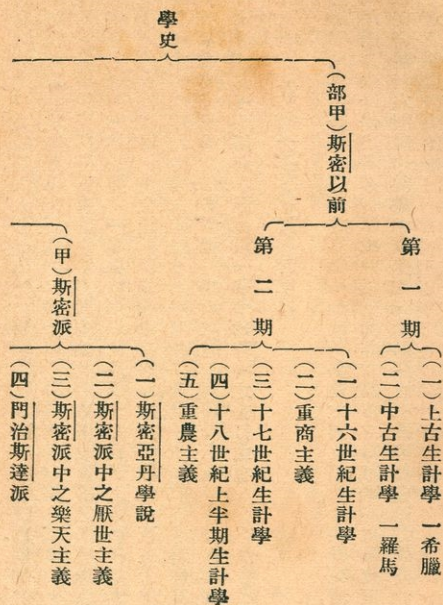 學史
(部甲)斯密以前
第一期
(一)上古生計學 一希臘
(二)中古生計學 一羅馬
第二期
(一)十六世紀生計學
(二)重商主義
(三)十七世紀生計學
(四)十八世紀上半期生計學
(五)重農主義
(甲)斯密派
(一)斯密亞丹學說
(二)斯密派中之厭世主義
(三)斯密派中之樂天主義
(四)門治斯達派